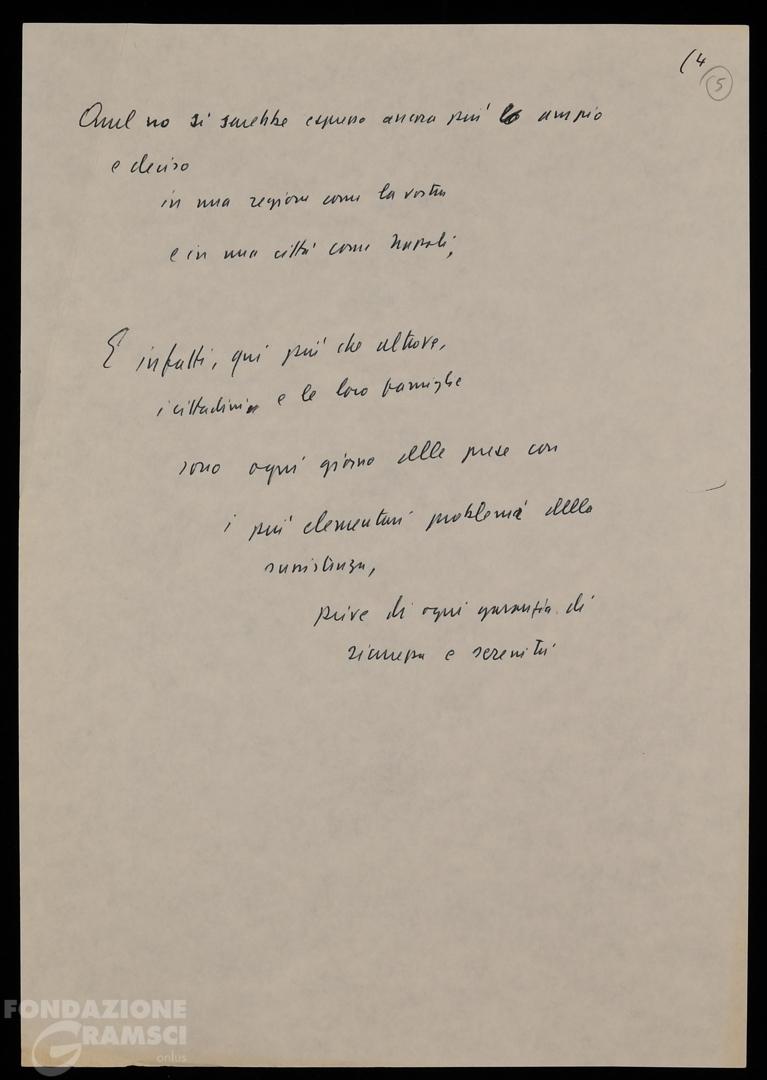 (4
(5)
Quel no si sarebbe espresso ancora più ampio
e deciso
in una regione come la vostra
e in una città come Napoli;
E infatti, qui più che altrove,
i cittadini e le loro famiglie
sono ogni giorno alle prese con
i più elementari problemi della
sussistenza,
prive di ogni garanzia di
sicurezza e serenità
FONDAZIONE
GRAMSCI
onlus